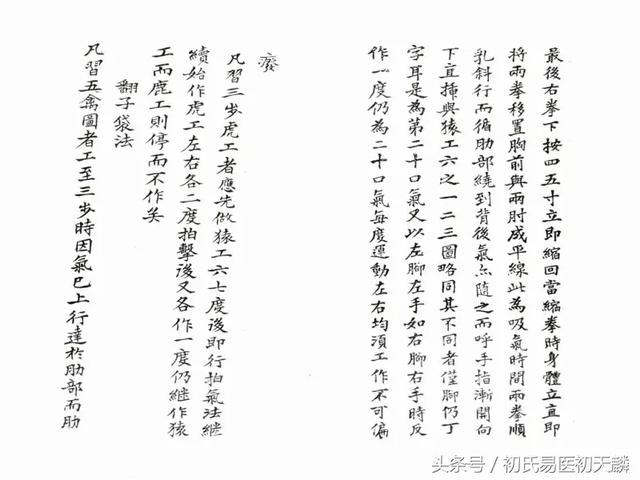 最後右拳下按四五寸立即縮回當縮拳時身體立直即
將兩拳移置胸前與兩肘成平線此為吸氣時間兩拳順
乳斜行而循肋部繞到背後氣亦隨之而呼手指漸開向
下直揷與猿工六之一二三圖略同其不同者僅腳仍丁
字耳是為第二十口氣又以左腳左手如右腳右手時反
作一度仍為二十口氣每度運動左右均須工作不可偏
廢
凡習三步虎工者應先做猿工六七度後即行拍氣法繼
續始作虎工左右各二度拍擊後又各作一度仍継作猿
工而鹿工則停而不作矣
翻子袋法
凡習五禽圖者工至三步時因氣已上行達於肋部而肋
头条号/初氏易医初天麟